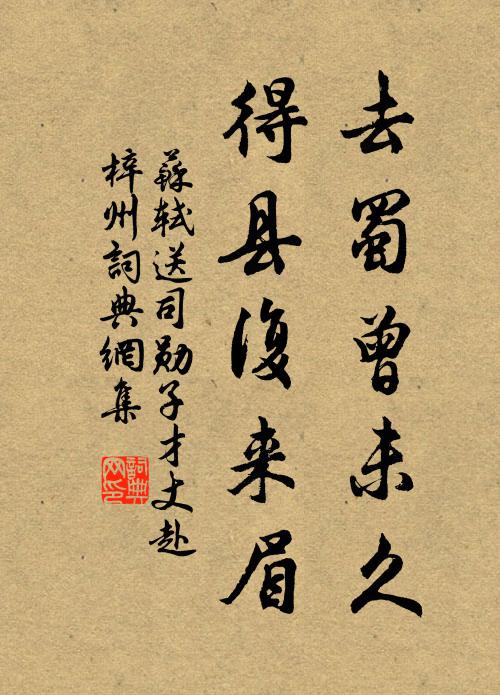 去蜀曾未久
得县復来眉
蘇軾送司勋子才丈赴
梓州詞典網集
詞典网印